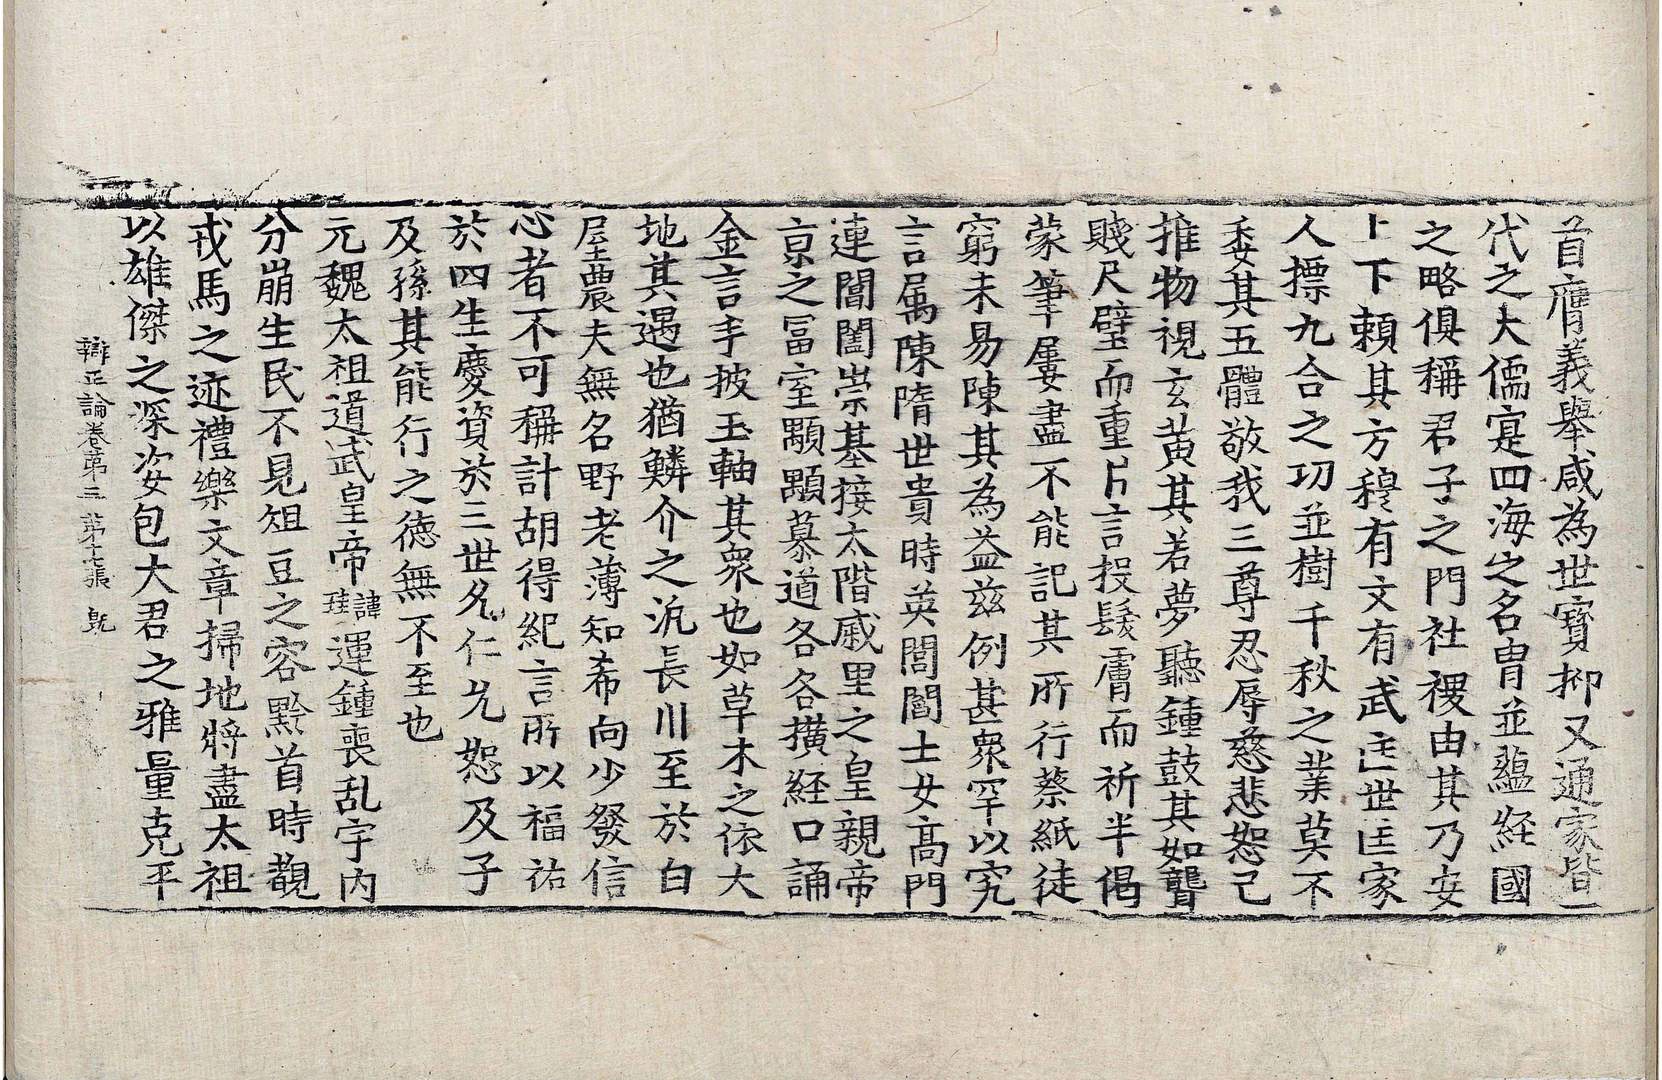 首膺義舉咸為世寳抑又通家皆一
代之大儒寔四海之名胄並蘊経國
之略俱稱君子之門社稷由其乃安
上下賴其方穆有文有武匡世匡家
人摽九合之功並樹千秋之業莫不
委其五體敬我三尊忍辱慈悲恕己
推物視玄黄其若夢聽鍾鼓其如聾
賤尺璧而重片言投髮膚而祈半偈
蒙筆屢盡不能記其所行蔡紙徒
窮未易陳其為益兹例甚衆罕以究
言属陳隋世貴時英閭閻士女髙門
連閣闔崇基接太階戚里之皇親帝
京之冨室顒顒慕道各各横経口誦
金言手披玉軸其衆也如草木之依大
地其遇也猶鱗介之沉長川至於白
屋農夫無名野老薄知希向少發信
心者不可稱計胡得紀言所以福祐
於四生慶資於三世允仁允恕及子
及孫其能行之徳無不至也
元魏太祖道武皇帝諱珪運鍾喪乱宇内
分崩生民不見俎豆之容黔首時覩
戎馬之迹禮樂文章掃地將盡太祖
以雄傑之深姿包大君之雅量克平
辯正論卷第三 第十七張 旣